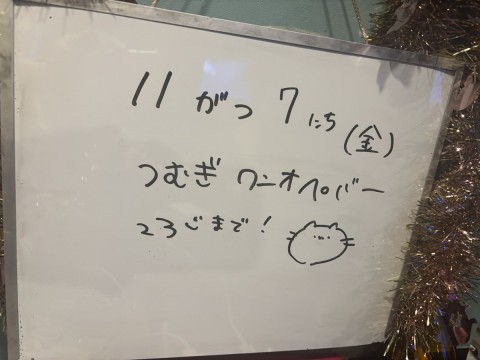 11がつ7にち(金)
つむぎワンオペバー
23じまで!